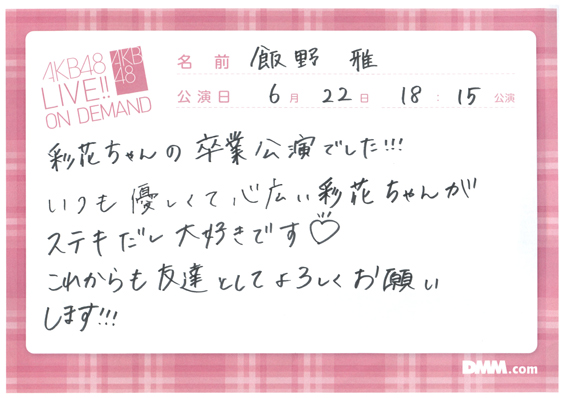 AKB48
LIVE!!
ON DEMAND
AKB
48
名前 飯野 雅
公演日 6月 22日 18:15 公演
彩花ちゃんの卒業公演でした!!!
いつも優しくて心広い彩花ちゃんが
ステキだし大好きです♡
これからも友達としてよろしくお願い
します!!!
DMM.com